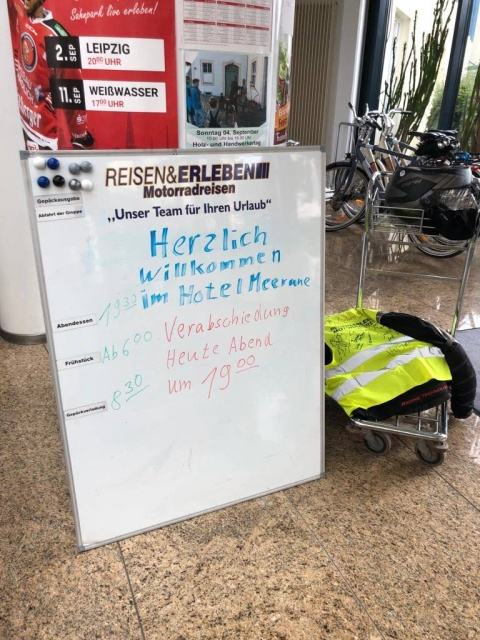 Sahnpark live erleben!
2. SEP LEIPZIG
20:00 UHR
11. SEP WEISSWASSER
17:00 UHR
Sonntag 04. September
Holz- und Handwerkertag
REISEN&ERLEBEN
Motorradreisen
„Unser Team für Ihren Urlaub"
Gepäckausgabe
Abfahrt der Gruppe
Herzlich
willkommen
im Hotel Meerane
Abendessen 19 30
Verabschiedung
Frühstück Ab 6 00
Heute Abend
Gepäckverladung 8 30
um 19 00